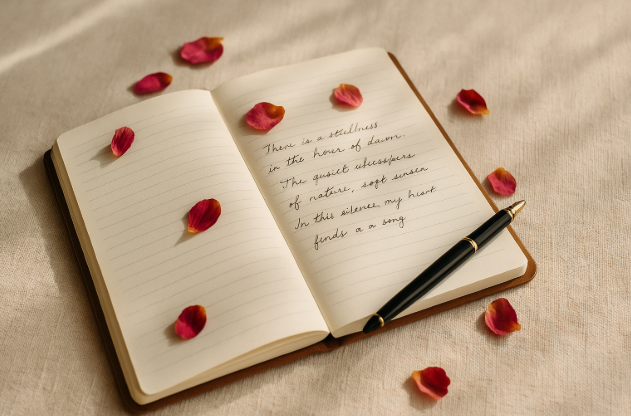 There is a stellness
in the hour of dawn.
The qusiet
of nature, sopt
In this silence my heart
finds a a song